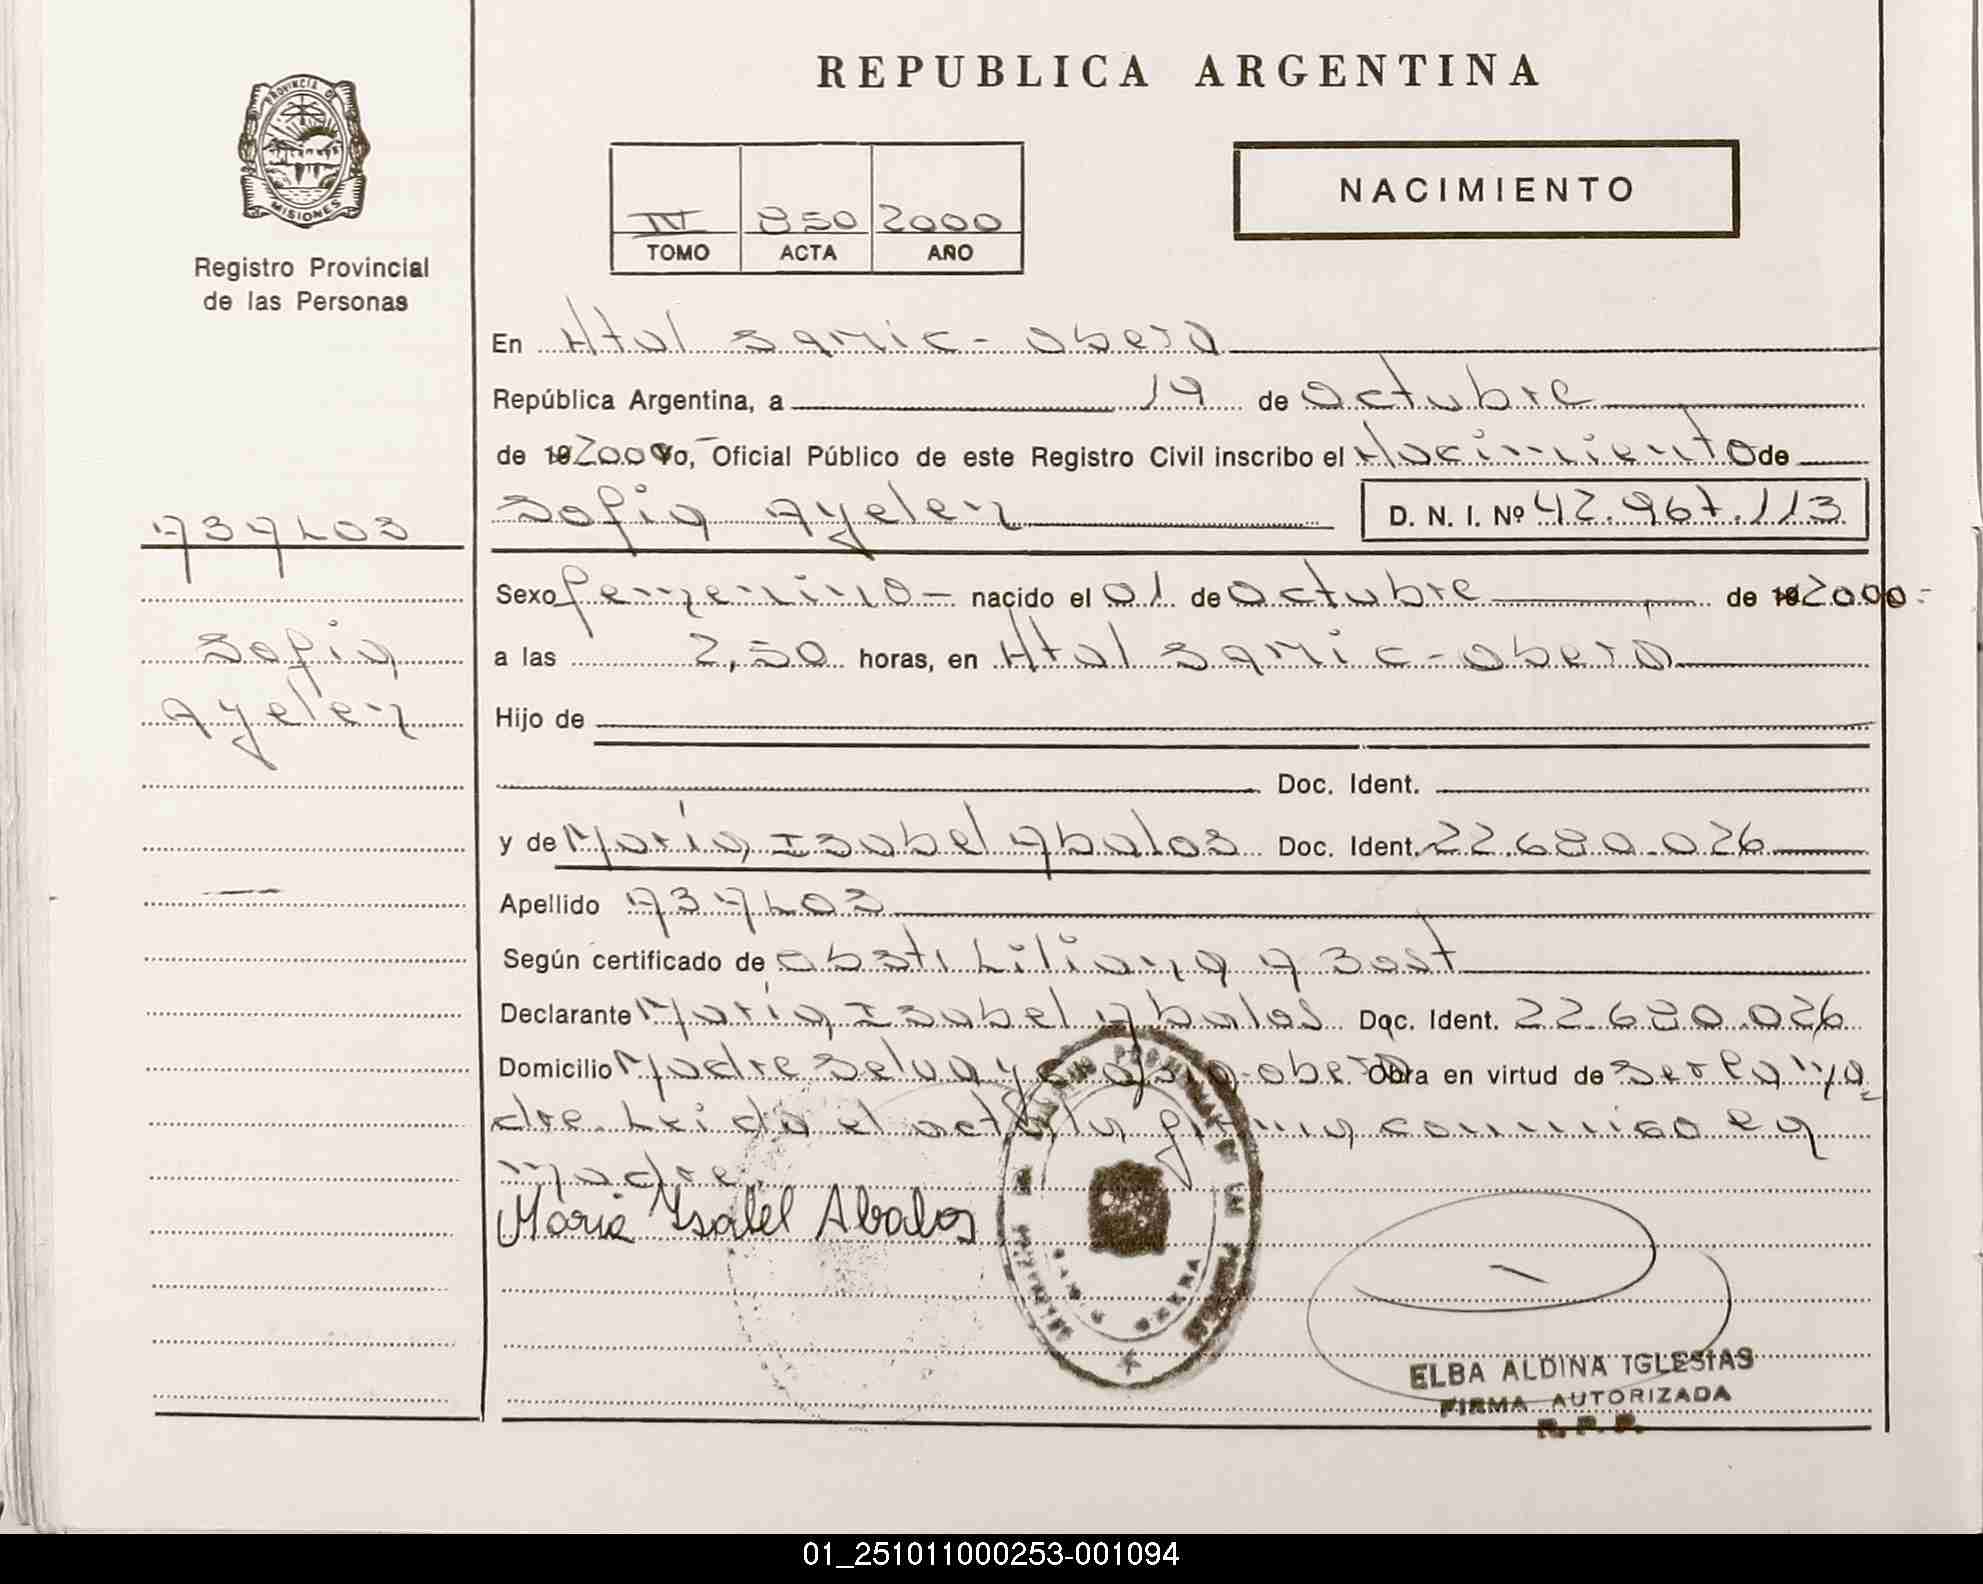 REPUBLICA ARGENTINA
PROVINCIA DE
MISIONES
Registro Provincial
de las Personas
III 850 2000
TOMO ACTA AÑO
NACIMIENTO
En Htal Samic - Oberá
República Argentina, a 19 de Octubre
de 19 2000 Yo, Oficial Público de este Registro Civil inscribo el Nacimiento de
Sofia Ayelen D. N. I. Nº 42.967.113
ABALOS
Sofia
Ayelen
Sexo femenino - nacido el 01 de Octubre de 19 2000.-
a las 2,50 horas, en Htal Samic - Oberá
Hijo de
Doc. Ident.
y de María Isabel Abalos Doc. Ident. 22.680.026
Apellido ABALOS
Según certificado de Obst. Liliana A
Declarante María Isabel Abalos Doc. Ident. 22.680.026
Domicilio Madre Selva y Oberá Obra en virtud de ser la ma
dre. Leída el acta la firma conmigo la
madre.
Maria Isabel Abalos
ELBA ALDINA IGLESIAS
FIRMA AUTORIZADA
R. P. P.
01_251011000253-001094